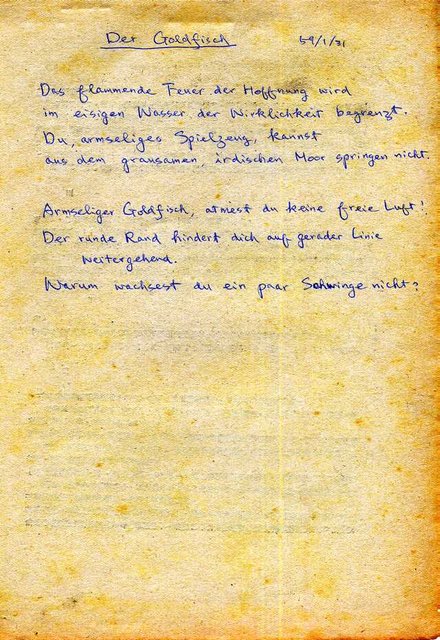 Der Goldfisch 59/1/31
Das flammende Feuer der Hoffnung wird
im eisigen Wasser der Wirklichkeit begrenzt.
Du, armseliges Spielzeug, kannst
aus dem grausamen, irdischen Moor springen nicht.
Armseliger Goldfisch, atmest du keine freie Luft!
Der runde Rand hindert dich auf gerader Linie
weitergehend.
Warum wachsest du ein paar Schwinge nicht?